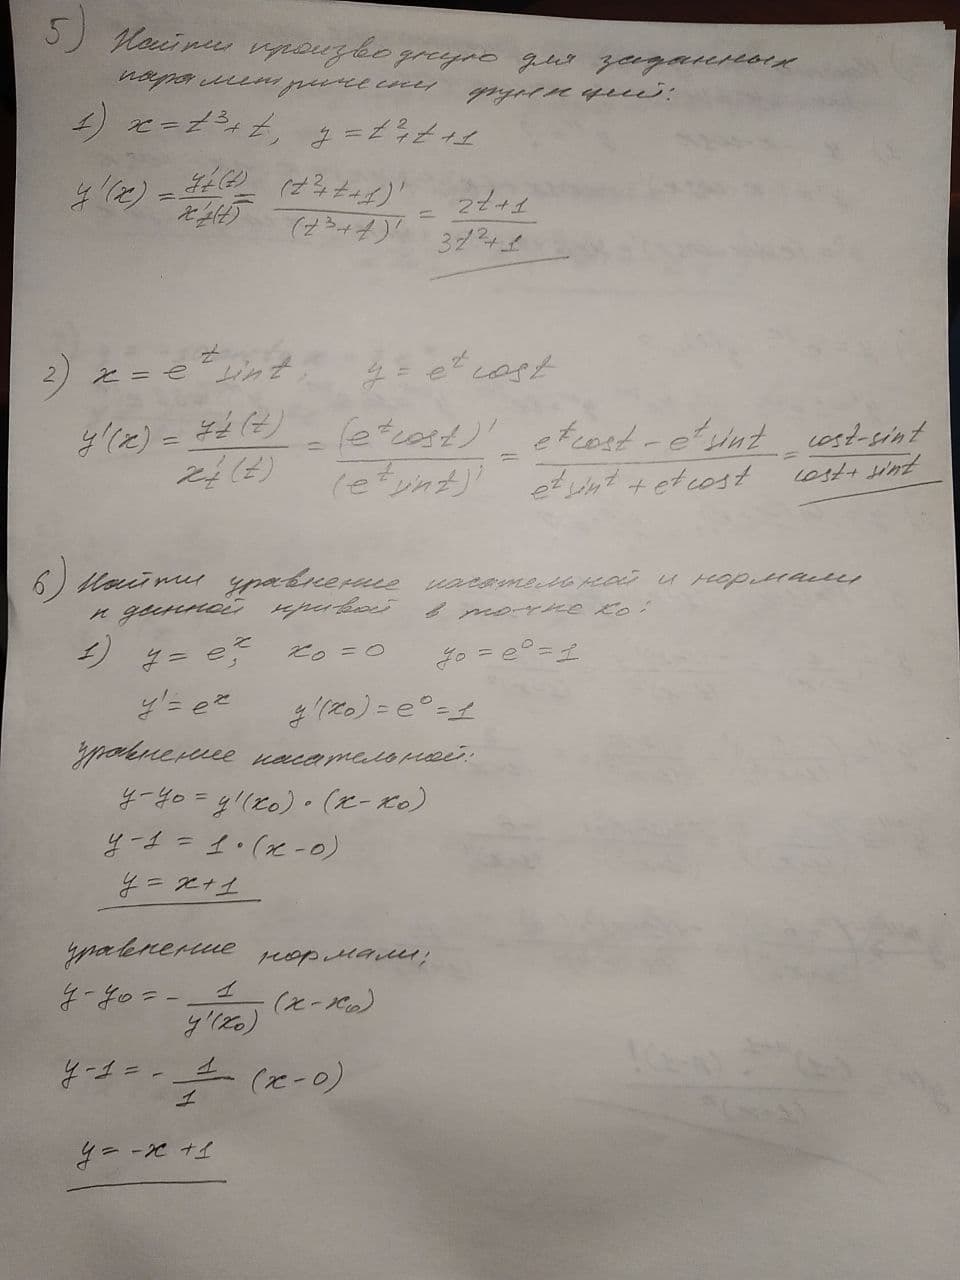 5) Найти производную для заданных
параметрически функций:
1) x = t³ + t, y = t² + t + 1
y'(x) = y't(t) / x't(t) = (t² + t + 1)' / (t³ + t)' = 2t + 1 / 3t² + 1
2) x = e^t sin t; y = e^t cos t
y'(x) = y't(t) / x't(t) = (e^t cos t)' / (e^t sin t)' = e^t cos t - e^t sin t / e^t sin t + e^t cos t = cos t - sin t / cos t + sin t
6) Найти уравнение касательной и нормали
к данной кривой в точке x₀:
1) y = e^x; x₀ = 0 y₀ = e⁰ = 1
y' = e^x y'(x₀) = e⁰ = 1
уравнение касательной:
y - y₀ = y'(x₀) · (x - x₀)
y - 1 = 1 · (x - 0)
y = x + 1
уравнение нормали:
y - y₀ = - 1 / y'(x₀) (x - x₀)
y - 1 = - 1 / 1 (x - 0)
y = -x + 1